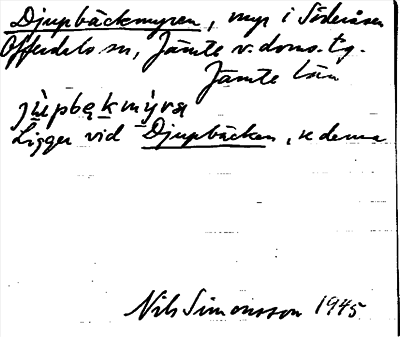 Djupbäckmyren, myr i Söderåsen
Offerdals sn, Jämte v. doms. tg.
Jämte län
jùpbękmýrꝍ
Ligger vid Djupbäcken, se denna
Nils Simonsson 1945